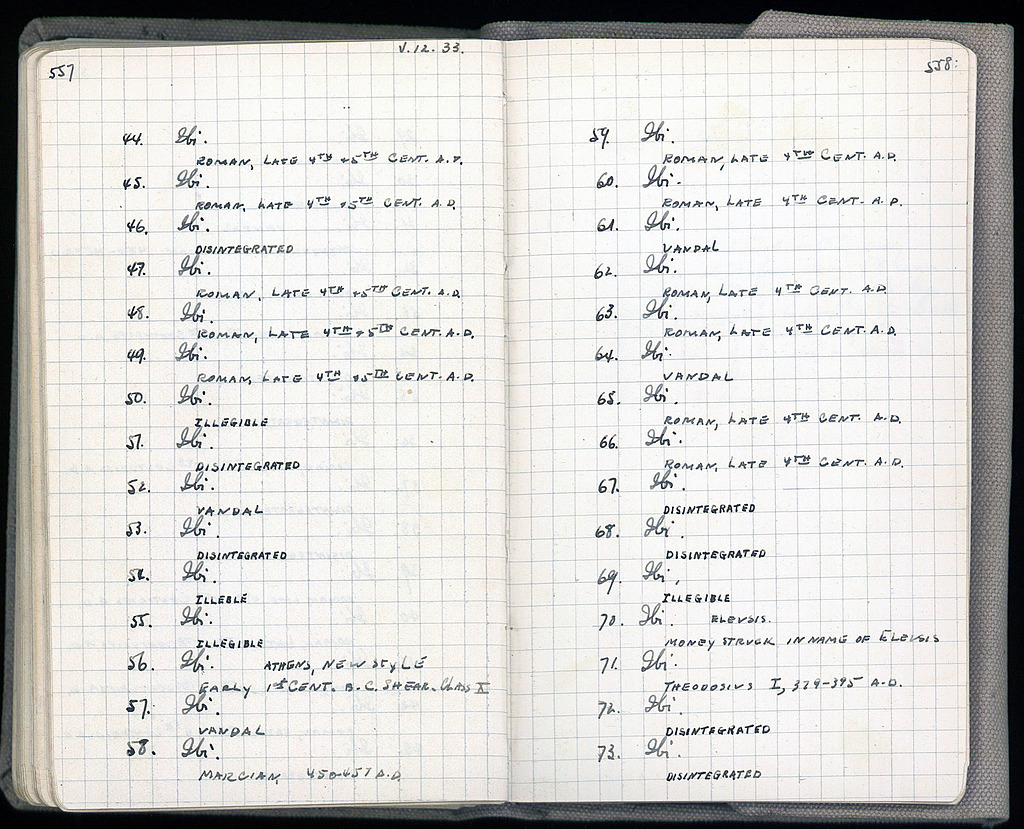 557
V. 12. 33.
44. Ibi.
ROMAN, LATE 4TH + 5TH CENT. A.D.
45. Ibi.
ROMAN, LATE 4TH + 5TH CENT. A.D.
46. Ibi.
DISINTEGRATED
47. Ibi.
ROMAN, LATE 4TH + 5TH CENT. A.D.
48. Ibi.
ROMAN, LATE 4TH + 5TH CENT. A.D.
49. Ibi.
ROMAN, LATE 4TH + 5TH CENT. A.D.
50. Ibi.
ILLEGIBLE
51. Ibi.
DISINTEGRATED
52. Ibi.
VANDAL
53. Ibi.
DISINTEGRATED
54. Ibi.
ILLEBLE
55. Ibi.
ILLEGIBLE
56. Ibi. ATHENS, NEW STYLE
EARLY 1ST CENT. B.C. SHEAR. CLASS X
57. Ibi.
VANDAL
58. Ibi.
MARCIAN, 450-457 A.D.
558:
59. Ibi.
ROMAN, LATE 4TH CENT. A.D.
60. Ibi.
ROMAN, LATE 4TH CENT. A.D.
61. Ibi.
VANDAL
62. Ibi.
ROMAN, LATE 4TH CENT. A.D.
63. Ibi.
ROMAN, LATE 4TH CENT. A.D.
64. Ibi.
VANDAL
65. Ibi.
ROMAN, LATE 4TH CENT. A.D.
66. Ibi.
ROMAN, LATE 4TH CENT. A.D.
67. Ibi.
DISINTEGRATED
68. Ibi.
DISINTEGRATED
69. Ibi,
ILLEGIBLE
70. Ibi. ELEVSIS.
MONEY STRUCK IN NAME OF ELEVSIS
71. Ibi.
THEODOSIUS I, 379-395 A.D.
72. Ibi.
DISINTEGRATED
73. Ibi.
DISINTEGRATED